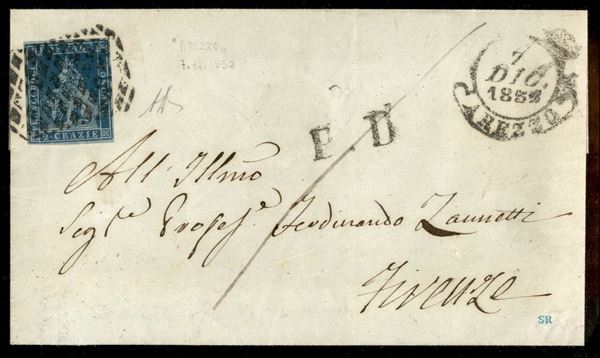 "AREZZO"
7.12.1852
FRANCO BOLLO
POSTALE TOSCANO
2. CRAZIE
7
DIC.
1852
AREZZO
P. D
All' Illmo
Sigre Profese Ferdinando Zannetti
Firenze
SR